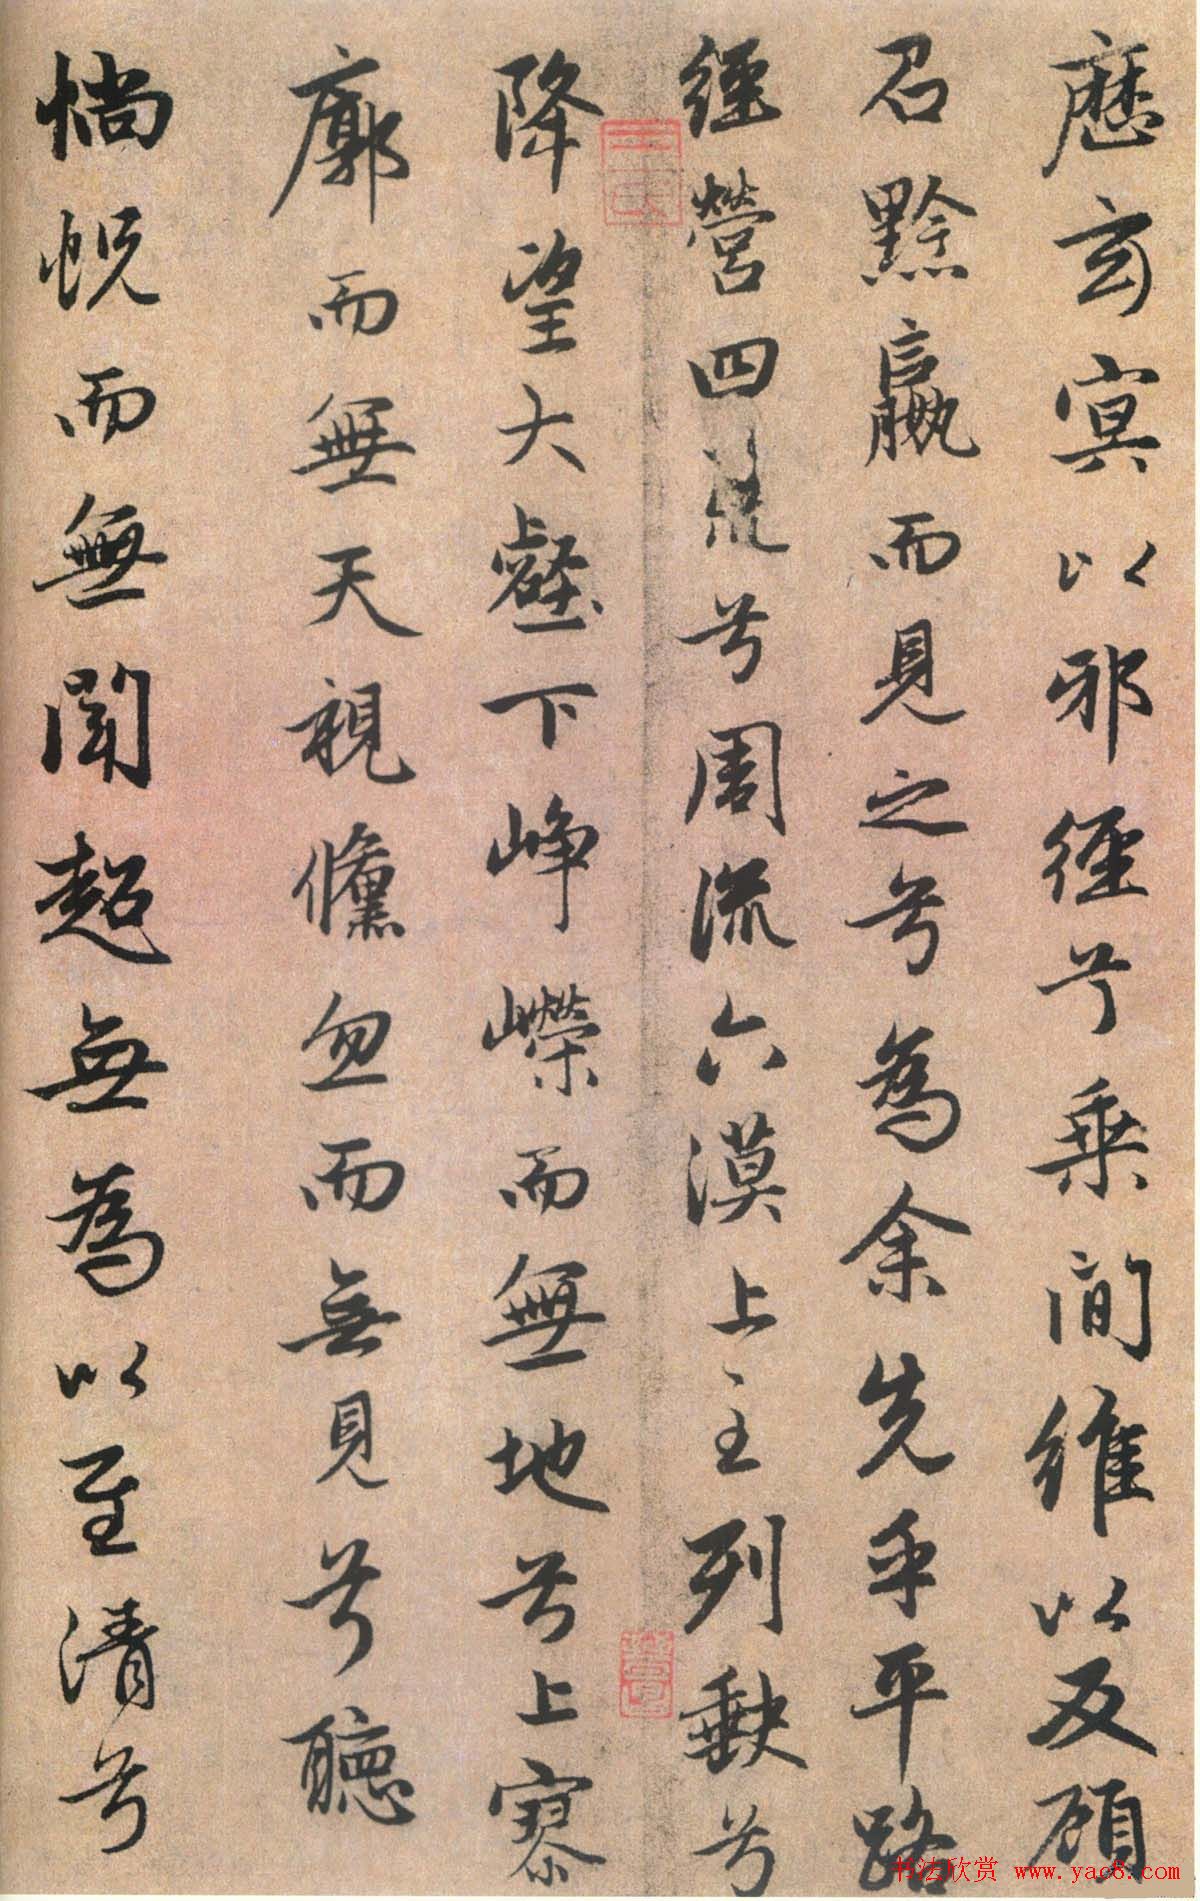 歷玄冥以邪徑兮乘間維以反顧
召黔嬴而見之兮為余先乎平路
經營四荒兮周流六漠上至列缺兮
降望大壑下崢嶸而無地兮上寥
廓而無天視儵忽而無見兮聽
惝怳而無聞超無為以至清兮
书法欣赏 www.yac8.com